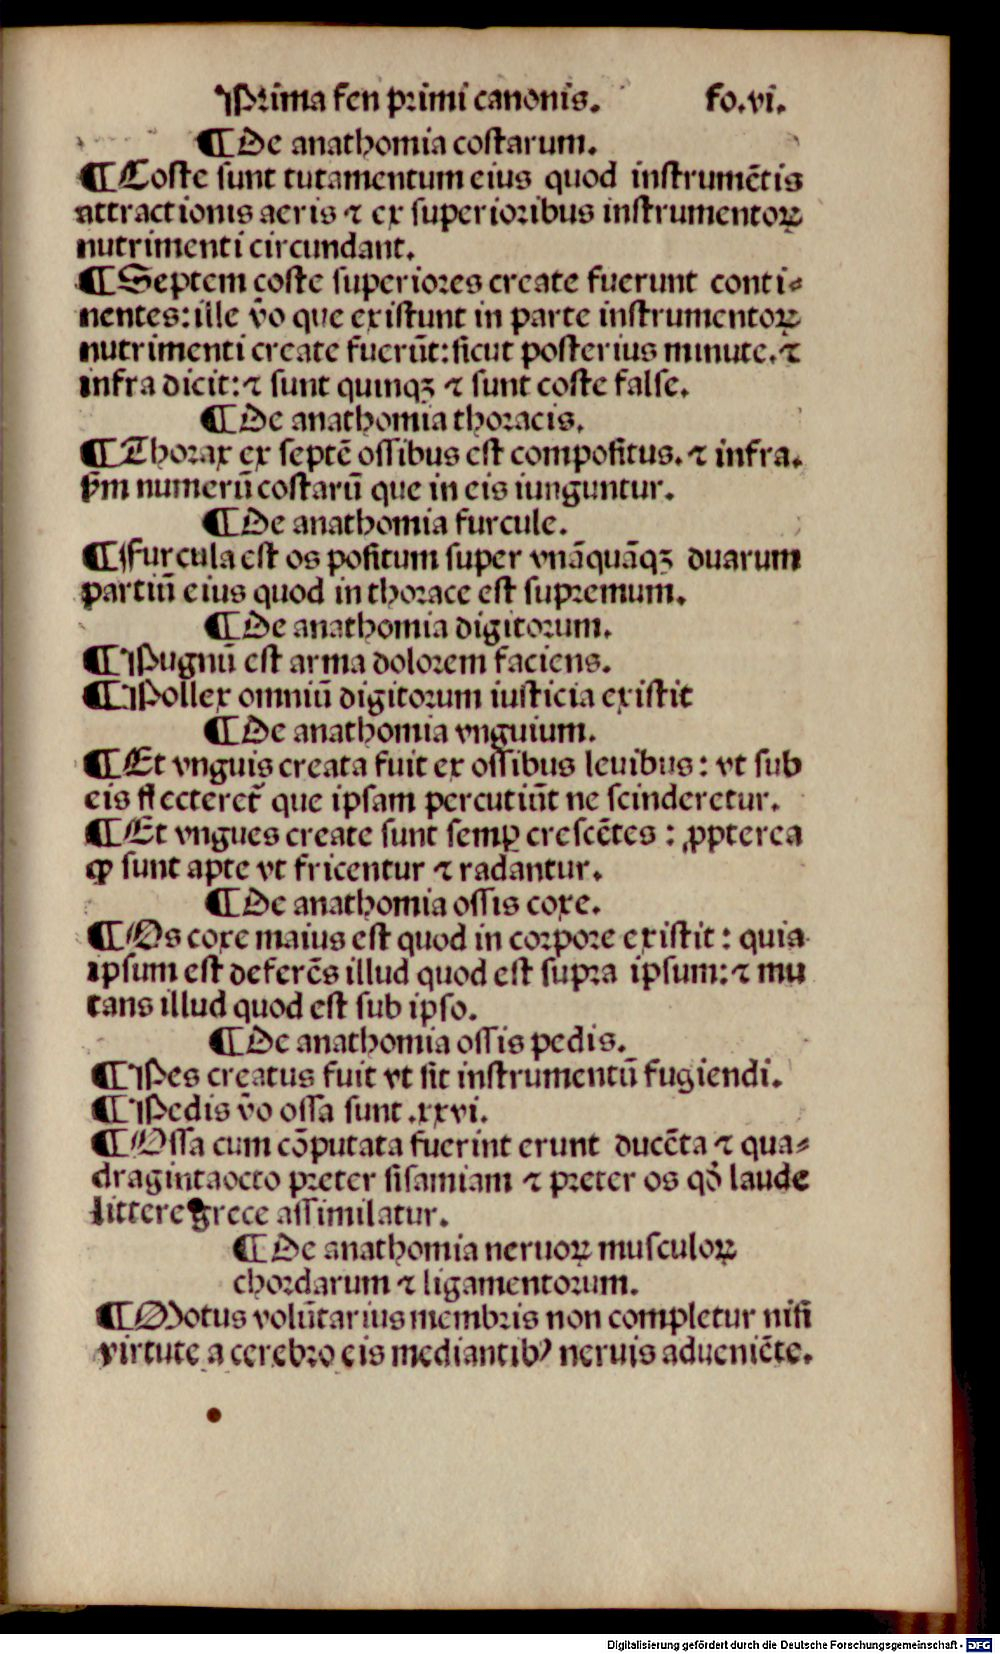 Prima fen primi canonis. fo.vi.
¶ De anathomia costarum.
¶ Coste sunt tutamentum eius quod instrumētis
attractionis aeris ⁊ ex superioribus instrumentoꝝ
nutrimenti circundant.
¶ Septem coste superiores create fuerunt conti⸗
nentes: ille v̄o que existunt in parte instrumentoꝝ
nutrimenti create fuerūt: sicut posterius minute. ⁊
infra dicit: ⁊ sunt quinqꝫ ⁊ sunt coste false.
¶ De anathomia thoracis.
¶ Thorax ex septē ossibus est compositus. ⁊ infra.
ẜm numerū costarū que in eis iunguntur.
¶ De anathomia furcule.
¶ Furcula est os positum super vnāquāqꝫ duarum
partiū eius quod in thorace est supremum.
¶ De anathomia digitorum.
¶ Pugnū est arma dolorem faciens.
¶ Pollex omniū digitorum iusticia existit
¶ De anathomia vnguium.
¶ Et vnguis creata fuit ex ossibus leuibus: vt sub
eis flecteret̄ que ipsam percutiūt ne scinderetur.
¶ Et vngues create sunt semꝑ crescētes: ꝓpterea
ꝙ sunt apte vt fricentur ⁊ radantur.
¶ De anathomia ossis coxe.
¶ Os coxe maius est quod in corpore existit: quia
ipsum est deferēs illud quod est supra ipsum: ⁊ mu
tans illud quod est sub ipso.
¶ De anathomia ossis pedis.
¶ Pes creatus fuit vt sit instrumentū fugiendi.
¶ Pedis v̄o ossa sunt .xxvi.
¶ Ossa cum cōputata fuerint erunt ducēta ⁊ qua⸗
dragintaocto preter sisamiam ⁊ preter os qd̄ laude
littere grece assimilatur.
¶ De anathomia neruoꝝ musculoꝝ
chordarum ⁊ ligamentorum.
¶ Motus volūtarius membris non completur nisi
virtute a cerebro eis mediantibꝰ neruis adueniēte.
Digitalisierung gefördert durch die Deutsche Forschungsgemeinschaft - DFG